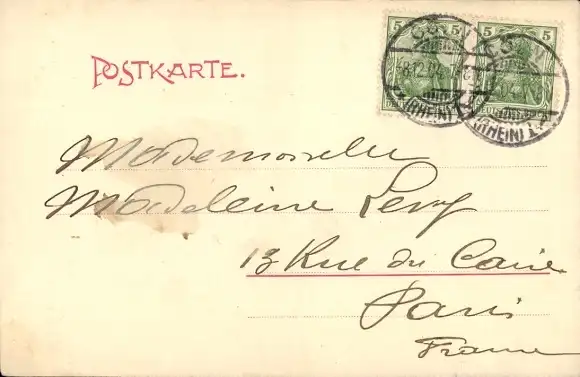 POSTKARTE.
5 5 5 5
(RHEIN) (RHEIN)
Mademoiselle
Madeleine Levy
13 Rue du Caire
Paris
France